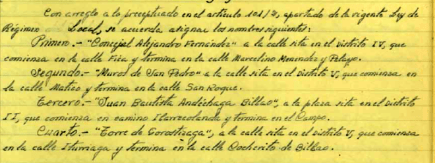 Con arreglo a lo preceptuado en el artículo 101/g, apartado de la vigente Ley de
Régimen Local, se acuerda asignar los nombres siguientes:
Primero.- "Concejal Alejandro Fernández" a la calle sita en el distrito IV, que
comienza en la calle Fica y termina en la calle Marcelino Menéndez y Pelayo.
Segundo.- "Mural de San Pedro" a la calle sita en el distrito V, que comienza en
la calle Matico y termina en la calle San Roque.
Tercero.- "Juan Bautista Bilbao", a la plaza sita en el distrito
II, que comienza en camino Ibarrecolanda y termina en el Campo.
Cuarto.- "Torre de Gorostiaga", a la calle sita en el distrito V, que comienza
en la calle Iturriaga y termina en la calle Cocherito de Bilbao.